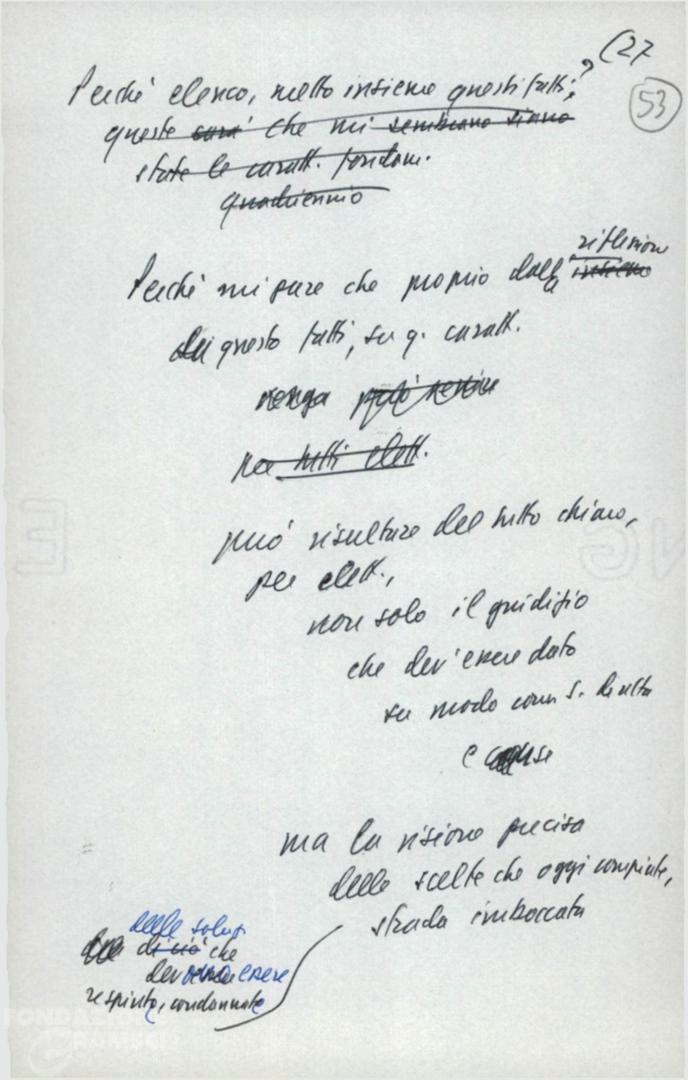 (27
53
Perché elenco, metto insieme questi fatti?
queste che mi sembrano siano
state le caratt. fondam.
quadriennio
riflessione
Perché mi pare che proprio dalla insieme
di questo fatti, su q. caratt.
venga
per tutti elett.
può risultare del tutto chiaro,
per elett.,
non solo il giudizio
che dev'essere dato
su modo com s.
e
ma la visione precisa
delle scelte che oggi compiute,
strada imboccata
delle soluz.
di ciò che
devono essere
respinte, condannate
FONDAZIONE
GRAMSCI